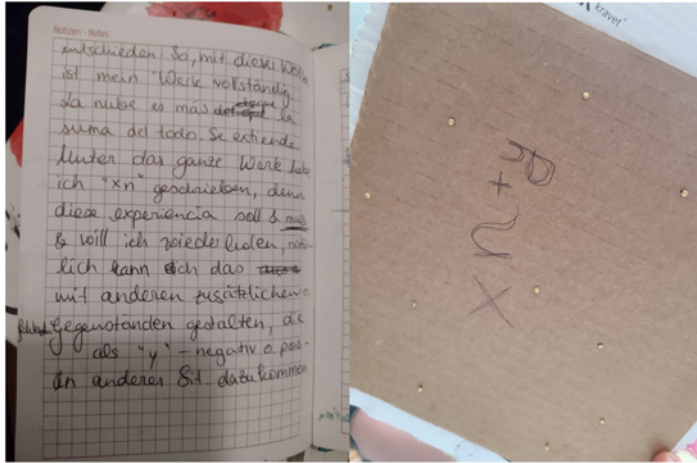 Notizen - Notes
entschieden. So, mit dieser
ist mein Werk vollständig.
La nube es más que la
suma del todo. Se extiende
Unter das ganze Werk habe
ich "xn" geschrieben, denn
diese experiencia soll & muss
& will ich wiederholen,
lich kann ich das
mit anderen zusätzlichen
Gegenständen gestalten, die
als "y" - negativ o pos-
in anderer Sit. dazukommen
kravet
R + U X